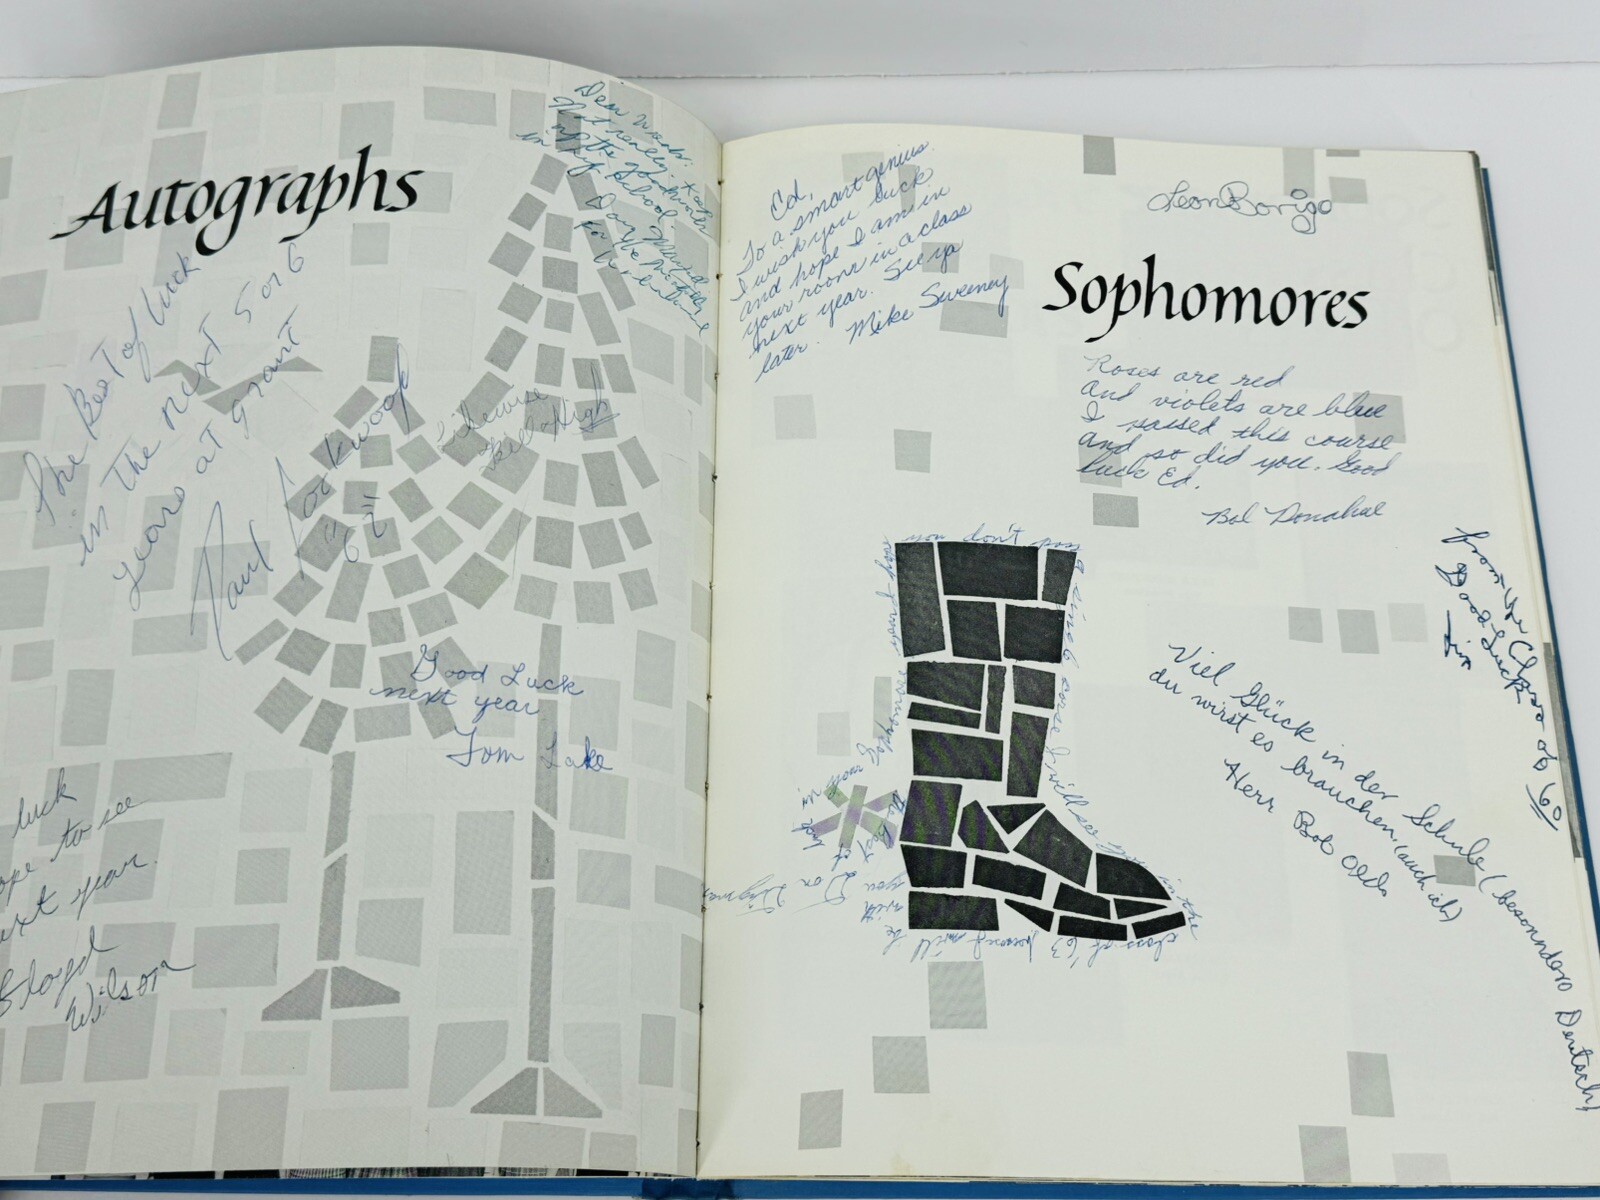 Autographs
The Best of luck
in The next 5 or 6
years at grant
Paul Lockwood
"62"
Dear
Not really. Keep
up the good work
in school.
Likewise
High
Good Luck
next year
Tom Lake
luck
ope to see
ext year.
Lloyd
Wilson
Ed,
To a smart genius.
I wish you luck
and hope I am in
your room in a class
next year. See ya
later. Mike Sweeney
Leon Borigo
Sophomores
Roses are red
And violets are blue
I passed this course
and so did you. Good
luck Ed.
Bob Donahue
you don't
I will see you in the
class of '63 will be
with you
The best of luck
in your Sophomore
Don
from the Class of 60
Good Luck
Jim
Viel Glück in der Schule (besonnders Deutsch)
du wirst es brauchen. (auch ich)
Herr Bob Olds